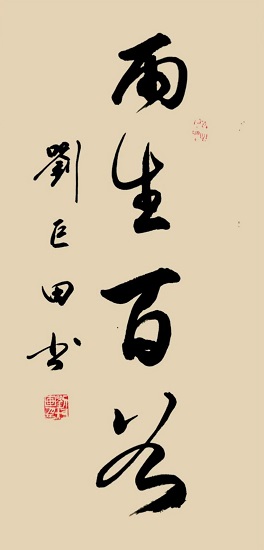 雨生百谷
劉巨田书